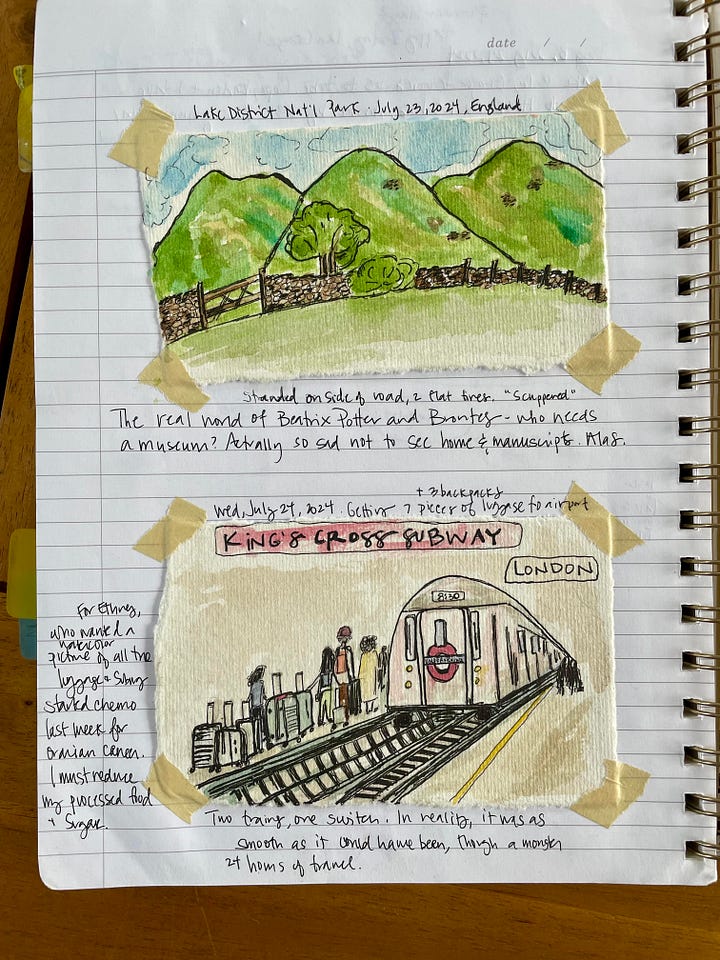 date / /
Lake District Nat'l Park · July 23, 2024, England
Stranded on side of road, 2 flat tires. "Scuppered"
The real world of Beatrix Potter and Brontes - who needs
a museum? Actually so sad not to see home & manuscripts. Alas.
+ 3 backpacks
Wed, July 24, 2024. Getting 7 pieces of luggage to airport
KING'S CROSS SUBWAY
LONDON
8:30
UNDERGROUND
For
who wanted a
watercolor
picture of all the
luggage & Subway
started chemo
last week for
ovarian cancer.
I must reduce
my processed food
+ Sugar.
Two trains, one switch. In reality, it was as
smooth as it could have been, though a monster
24 hours of travel.